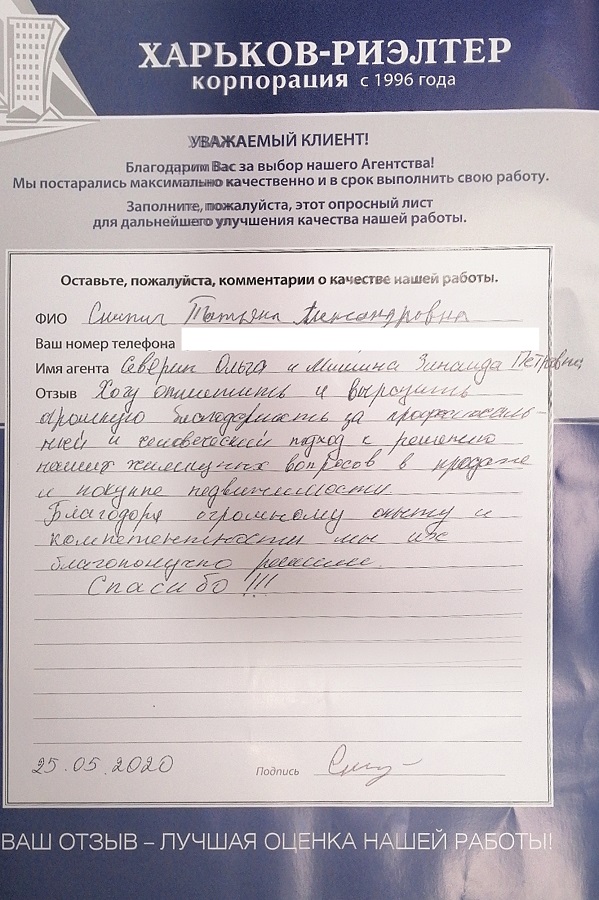 ХАРЬКОВ-РИЭЛТЕР
корпорация с 1996 года
УВАЖАЕМЫЙ КЛИЕНТ!
Благодарим Вас за выбор нашего Агентства!
Мы постарались максимально качественно и в срок выполнить свою работу.
Заполните, пожалуйста, этот опросный лист
для дальнейшего улучшения качества нашей работы.
Оставьте, пожалуйста, комментарии о качестве нашей работы.
ФИО Татьяна Александровна
Ваш номер телефона
Имя агента Северин Ольга и Мишина Зинаида Петровна
Отзыв Хочу отметить и выразить
огромную благодарность за профессиональ-
ный и человеческий подход к решению
наших жилищных вопросов в продаже
и покупке недвижимости.
Благодаря огромному опыту и
компетентности мы их
благополучно решили.
Спасибо !!!
25.05.2020 Подпись
ВАШ ОТЗЫВ – ЛУЧШАЯ ОЦЕНКА НАШЕЙ РАБОТЫ!